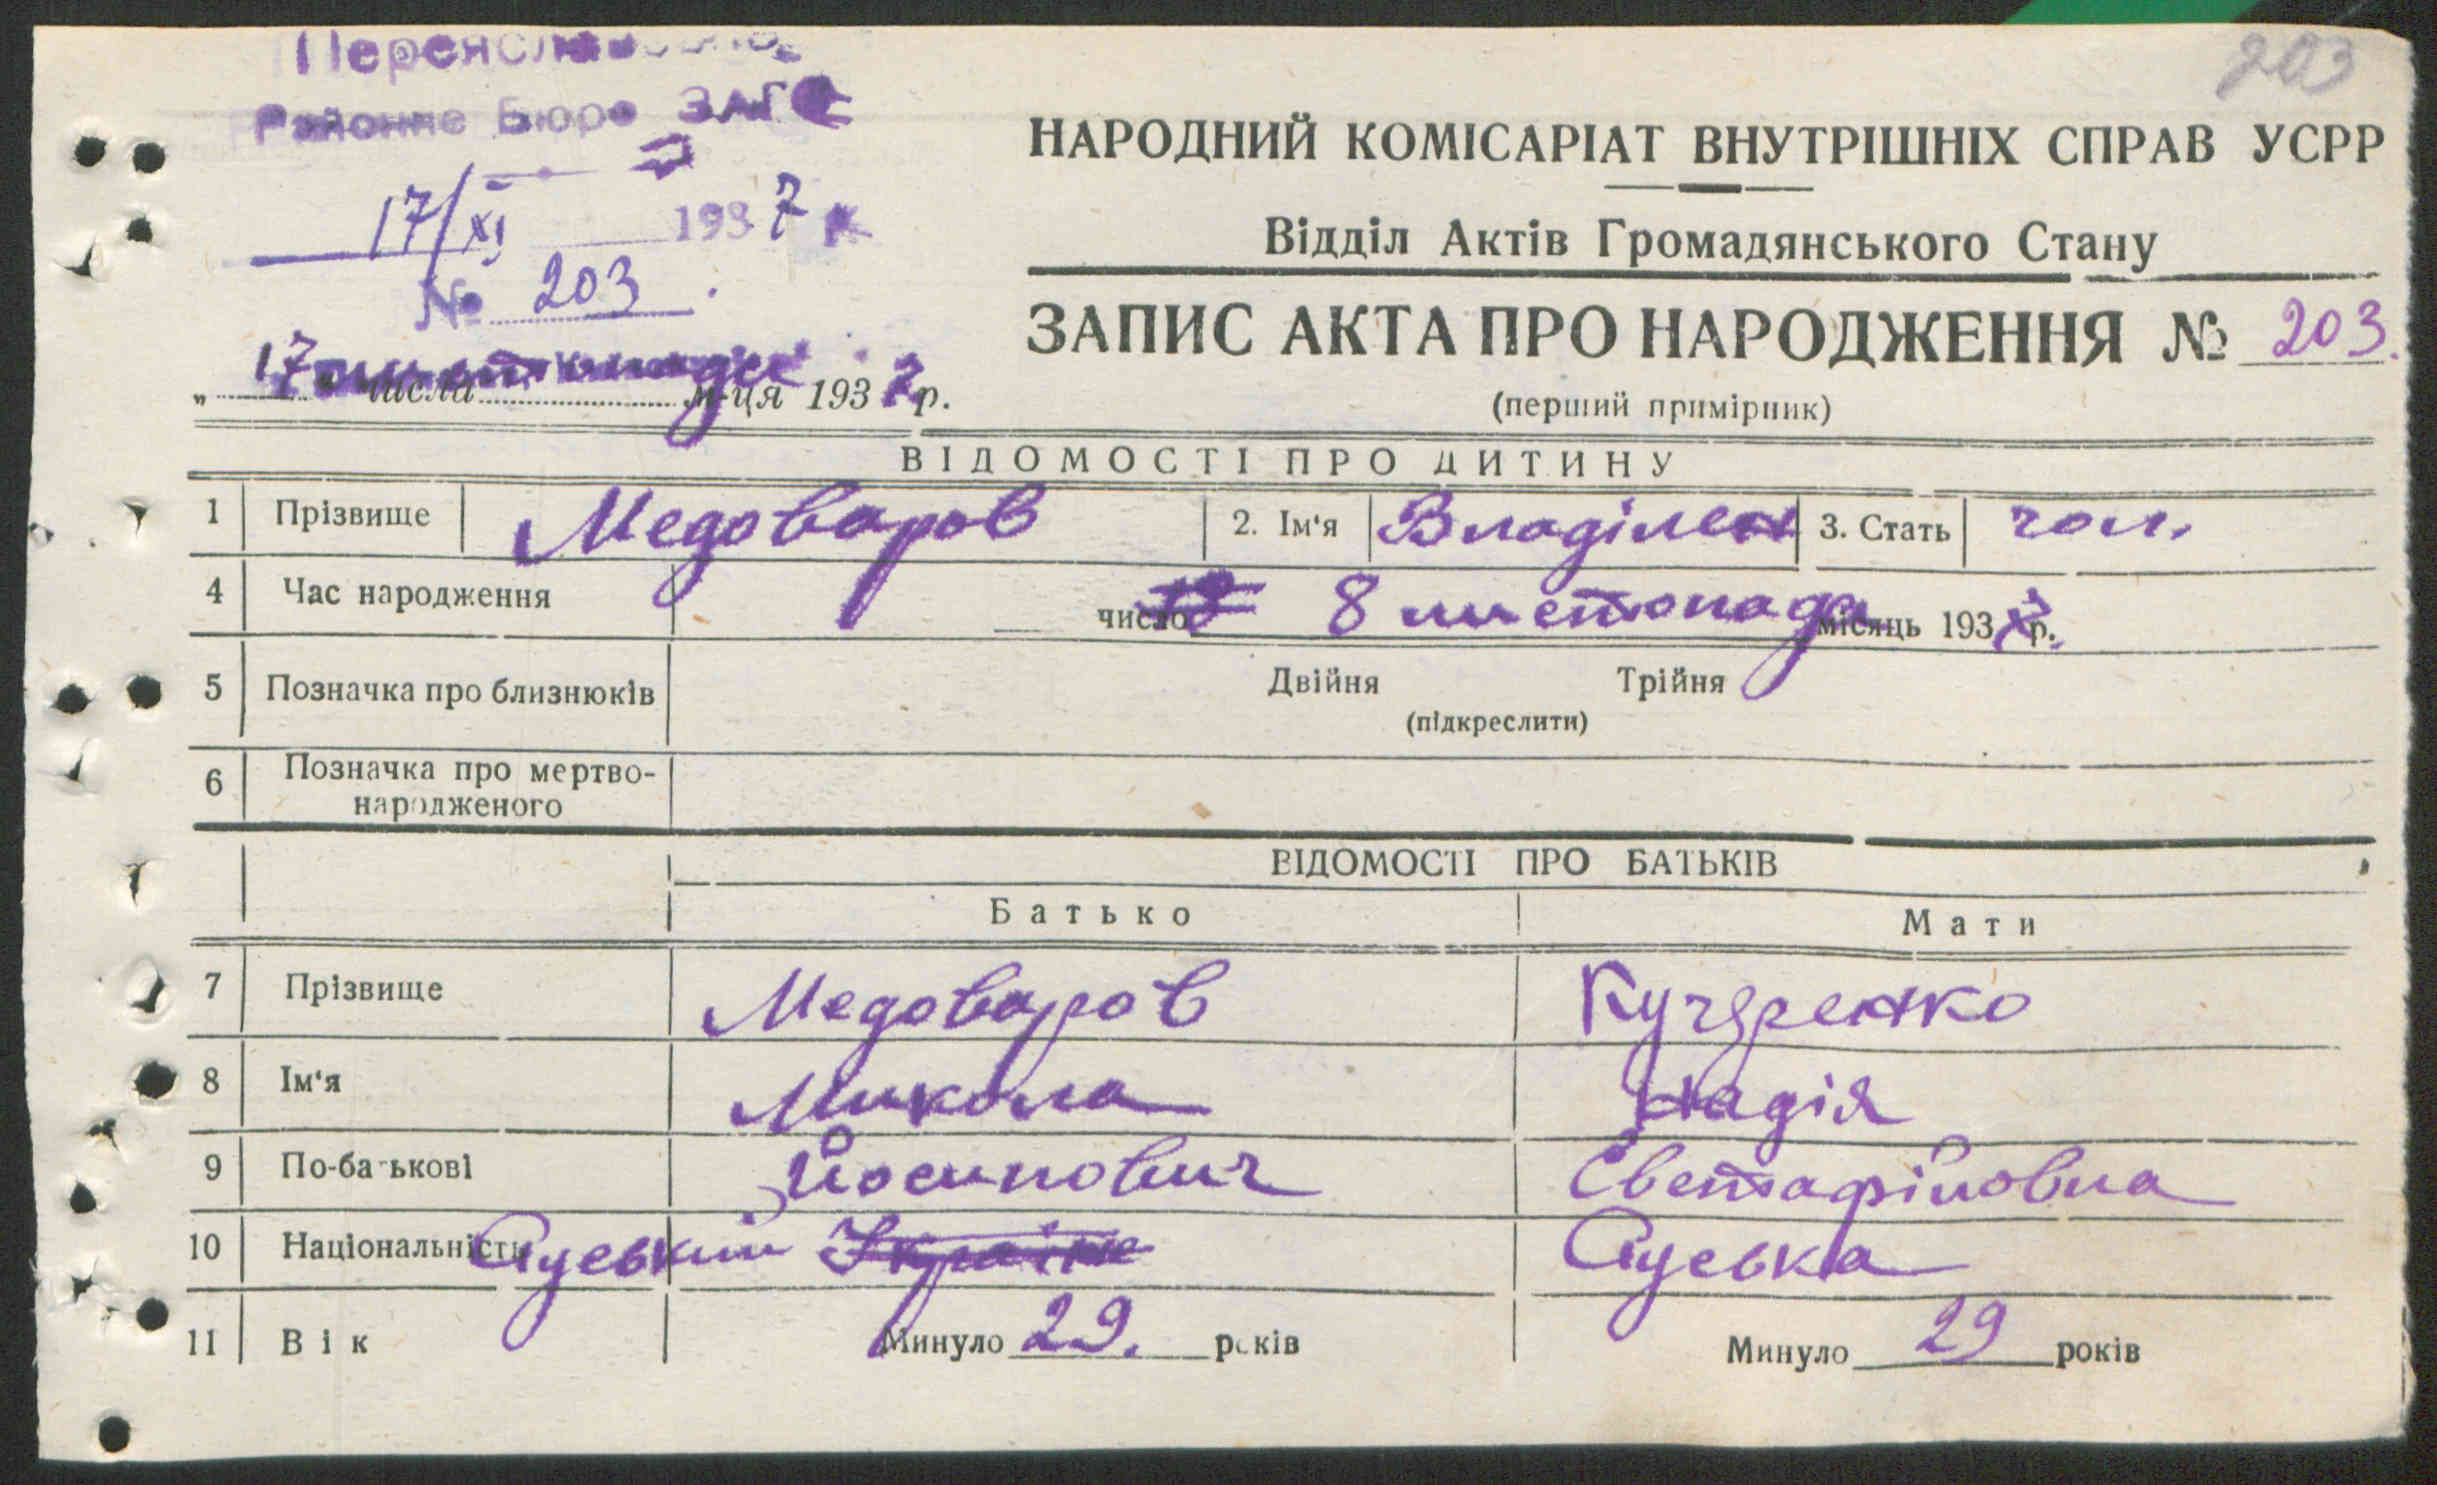 203
Районне Бюро ЗАГС
17/XI 1937 р
№ 203.
НАРОДНИЙ КОМІСАРІАТ ВНУТРІШНІХ СПРАВ УСРР
Відділ Актів Громадянського Стану
ЗАПИС АКТА ПРО НАРОДЖЕННЯ № 203.
(перший примірник)
„ 17 " числа листопада м-ця 1937 р.
ВІДОМОСТІ ПРО ДИТИНУ
1 Прізвище Медоваров 2. Ім'я Владілен 3. Стать чол.
4 Час народження число 8 листопада місяць 1937 р.
5 Позначка про близнюків Двійня Трійня
(підкреслити)
6 Позначка про мертво-
народженого
ВІДОМОСТІ ПРО БАТЬКІВ
Батько Мати
7 Прізвище Медоваров
8 Ім'я Микола Надія
9 По-батькові Йосипович Евстафіновна
10 Національність Руський Украіне Руська
11 Вік Минуло 29. років Минуло 29 років